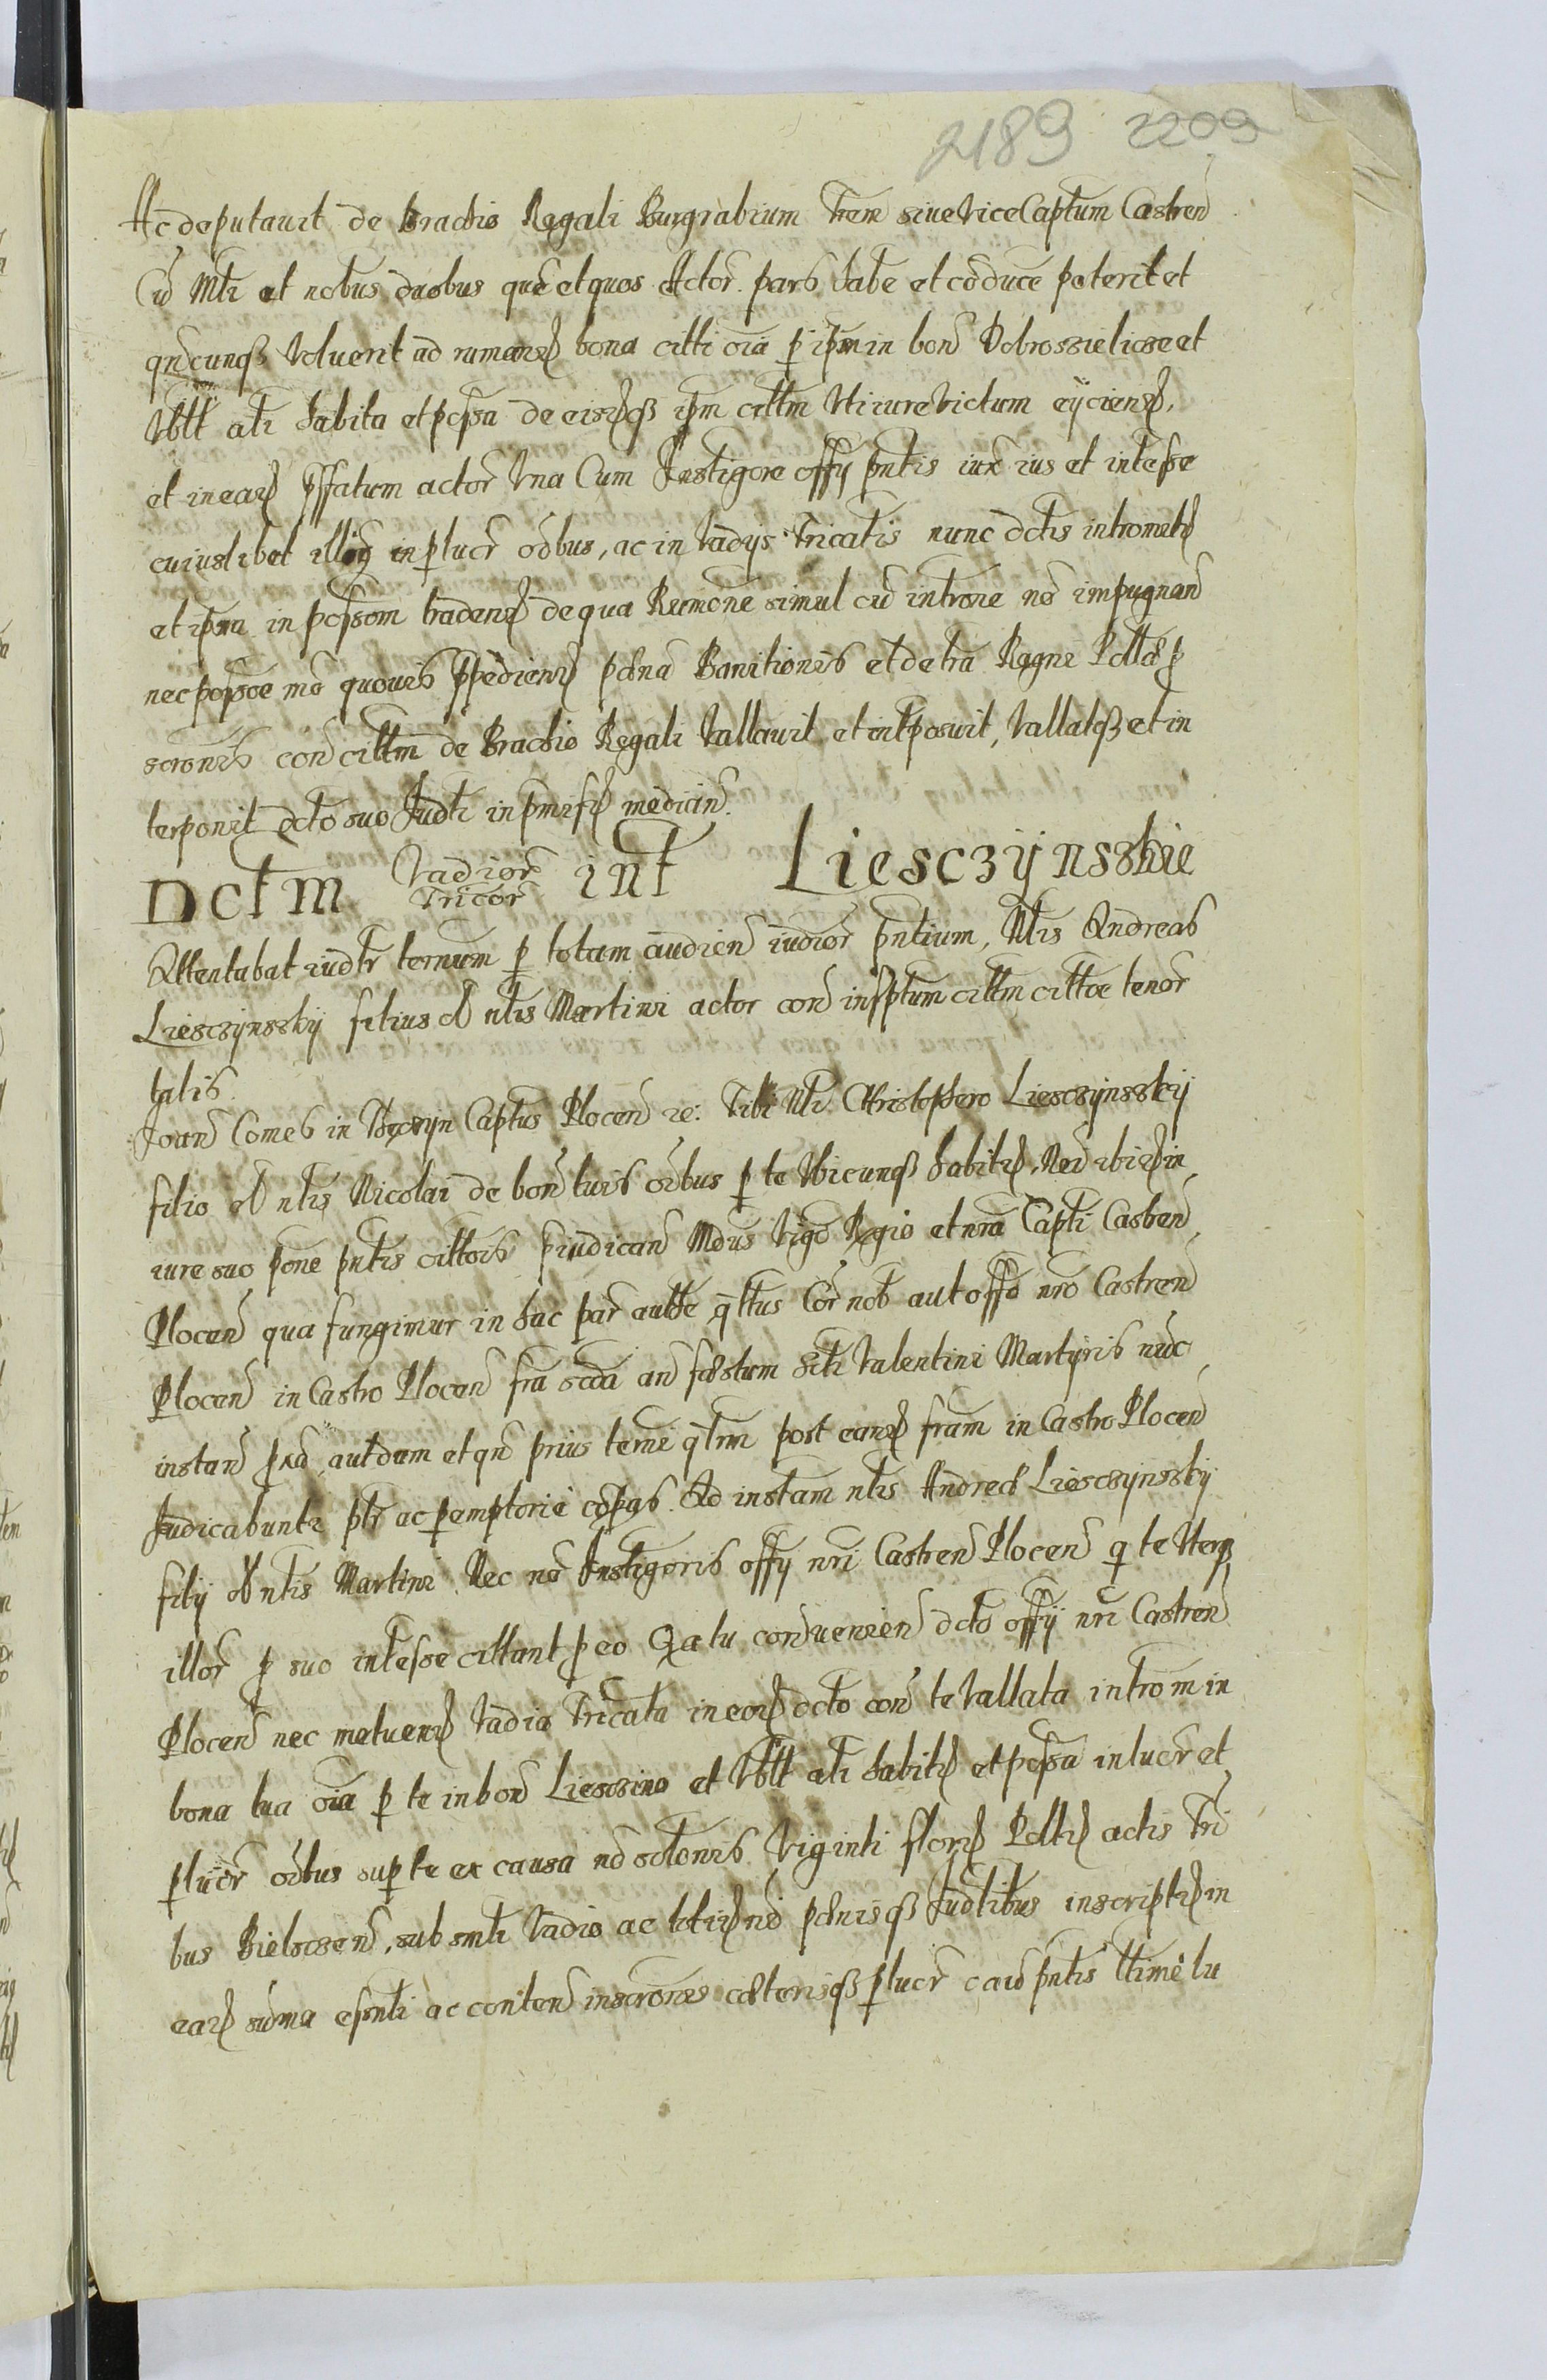 2189 2209
Ac deputavit de Brachio Regali Burgrabium Trem siue ViceCaptum Castren
Cu Mlti et nobus duobus que et quos Actor pars habe et coduce poterit et
qncunqz voluerit ad rumanz bona citti oia p ipm in bon Dobrossielicze et
Vblt ati habita et possa de eiszqz ipm cittm Uti iure Victum eyciend,
et in eaz pffatum actor Vna Cum Instigore offy pntis iux ius et intesse
cuiuslibet illoz in plucr odbus, ac in Vadys Tricatis nunc dctis intromitz
et ipna in possom tradenz de qua Rumone simul cu introne no impugnan
nec possoe mo quouis ppedienz pena Banitionis et de tra Regni Pdtta p
scronis con cittm de Brachio Regali Vallauit et intposuit, Vallatqz et in
terponit dcto suo Judti in pmisz medician.
Dctm Vadior Tricor int Liesczynsskie
Attentabat iudtr ternum p totam audien iudior pntium, Ntis Andreas
Liesczynsskij filius ol ntis Martini actor con insptum cittm cittoe tenor
talis.
Joan Comes in Thęczyn Captus Plocen ze: Tibi Nti Christophero Liesczynsskij
filio ol ntis Nicolai de bon tuis oibus p te Vbicunqz habitz, Nei ibiz in
iure suo pone pntis cittois piudican Mdus Vigo Regio et nra Capti Castren
Plocen qua fungimur in hac par autte qttus Cor nob aut offo nro Castren
Plocen in Castro Plocen fra scda an festum Scti Valentini Martyris nuc
instan pxa, aut dum et qn prius terme qrlnm post eanz fram in Castro Plocen
Judicabunti ptr ac pemptorie copas. Ad instam ntis Andreæ Liesczynsskij
filij ol ntis Martini Nec no Instigoris offy nri Castren Plocen q te Vterqz
illor p suo intesse cittant p eo Qa tu conuenien dcto offij nri Castren
Plocen nec metuenz Vadia Tricata in eoz dcto con te Vallata introm in
bona tua oia p te in bon Liesczino et Vblt ati habitz et possa in lucr et
plucr oibus sup te ex causa no solonis Viginti florz Pdttz actis Tri
bus Bielscen, sub smti Vadio ac litiz no penisqz Judtibus inscriptz in
eaz suma essnti ac conten inscrones cæterisqz plucr caio pntis ttime lu